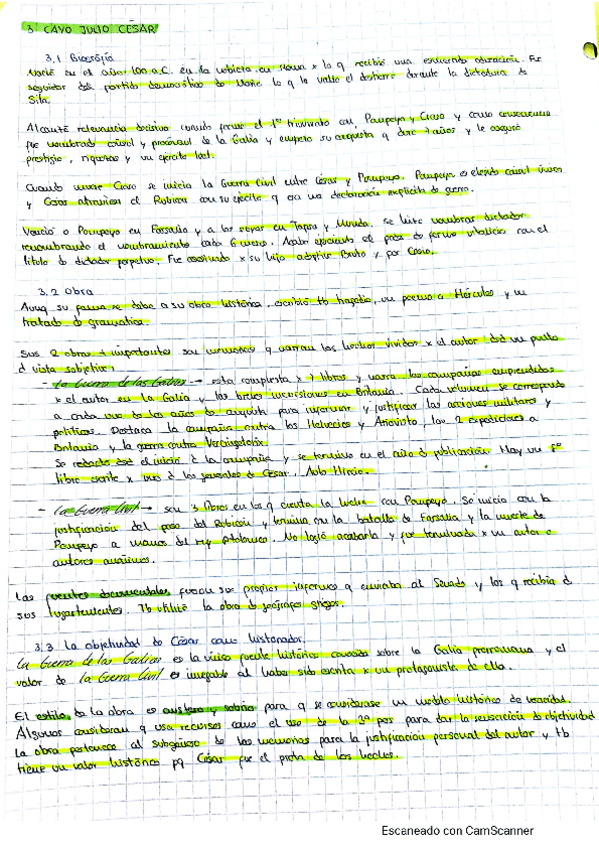 3. CAYO JULIO CÉSAR
3.1 Biografía
Nació en el año 100 a.C. en la nobleza en Roma x lo q recibió una esmerada educación. Fue
seguidor del partido democrático de Mario lo q le valió el destierro durante la dictadura de
Sila.
Alcanzó relevancia decisiva cuando formó el 1º triunvirato con Pompeyo y Craso y como consecuencia
fue nombrado cónsul y procónsul de la Galia y empezó su conquista q duró 7 años y le aseguró
prestigio, riquezas y un ejército leal.
Cuando muere Craso se inicia la Guerra Civil entre César y Pompeyo. Pompeyo es elegido cónsul único
y César atraviesa el Rubicón con su ejército q era una declaración explícita de guerra.
Venció a Pompeyo en Farsalia y a los suyos en Tapso y Munda. Se hizo nombrar dictador
renovando el nombramiento cada 6 meses. Acabó ejerciendo el de forma vitalicia con el
título de dictador perpetuo. Fue asesinado x su hijo adoptivo Bruto y por Casio.
3.2 Obra
Aunq su fama se debe a su obra histórica, escribió tb tragedia, un poema a Hércules y un
tratado d gramática.
Sus 2 obras + importantes son memorias q narran los hechos vividos x el autor dsd un punto
d vista subjetivo:
- La Guerra de las Galias → esta compuesta x 7 libros y narra las campañas emprendidas
x el autor en la Galia y las breves incursiones en Britania. Cada volumen se corresponde
a cada uno de los años de conquista para informar y justificar las acciones militares y
políticas. Destaca la campaña contra los Helvecios y Ariovisto, las 2 expediciones a
Britania y la guerra contra Vercingetórix.
Se redactó dsd el inicio d la campaña y se terminó en el año d publicación. Hay un 8º
libro escrito x uno d los generales de César, Aulo Hircio.
- La Guerra Civil → son 3 libros en los q cuenta la lucha con Pompeyo. Se inicia con la
justificación del paso del Rubicón y termina con la batalla de Farsalia y la muerte de
Pompeyo a manos del rey Ptolomeo. No logró acabarla y fue terminada x un autor o
autores anónimos.
Las fuentes documentales fueron sus propios informes q enviaba al Senado y los q recibía d
sus lugartenientes. Tb utilizó la obra de geógrafos griegos.
3.3. La objetividad de César como historiador.
La Guerra de las Galias es la única fuente histórica conocida sobre la Galia prerromana y el
valor de la Guerra Civil es innegable al haber sido escrita x un protagonista de ella.
El estilo de la obra es austero y sobrio para q se considerase un modelo histórico de veracidad.
Algunos consideran q usa recursos como el uso de la 3ª pers para dar la sensación de objetividad
La obra pertenece al subgénero de las memorias para la justificación personal del autor y tb
tiene un valor histórico pq César fue el prota de los hechos.
Escaneado con CamScanner